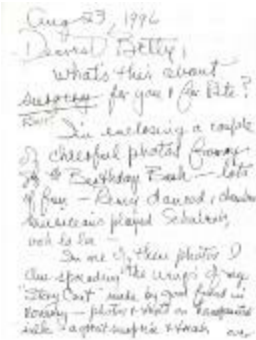 Aug 23, 1996
Dearest Betty,
What's this about
surgery for you & for Pete?
I'm enclosing a couple
of cheerful photos from
my Birthday Bash — lots
of fun — Percy danced, chamber
musicians played Schubert,
ooh la la —
In one of these photos I
am spreading the wings of my
"Story Coat" made by good friend in
— photos & words on
silk — a great surprise &
over